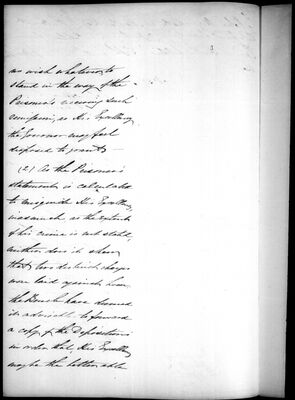 no wish whatever to
stand in the way of the
Prisoner's receiving such
remission, as His Excellency
the Governor may feel
disposed to grant.
(2) As the Prisoner's
statement is calculated
to misguide His Excellency
inasmuch as the extent
of his crime is not stated,
neither does it show
that two distinct charges
were laid against him,
the Bench have deemed
it advisable to forward
a copy of the Depositions
in order that His Excellency
may be the better able